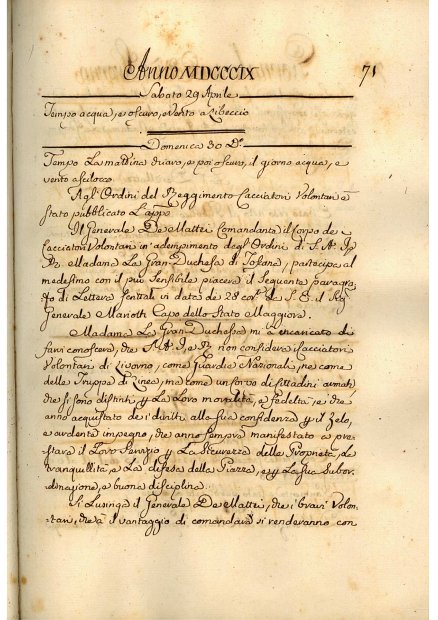 Anno MDCCCIX
71
Sabato 29 Aprile
Tempo acqua, e oscuro, e Vento a Libeccio
Domenica 30 D.º
Tempo La mattina chiaro, e poi oscuro, il giorno acqua, e
vento a scilocco
Agl' Ordini del Reggimento Cacciatori Volontari è
stato pubblicato L'app.º
Il Generale De Mattei Comandante il Corpo de
Cacciatori Volontari in adempimento degl' Ordini di S. A. I.
R. Madama La Gran Duchessa di Toscana, partecipa al
medesimo con il più Sensibile piacere il Seguente paragra,
fo di Lettera in data de 28 cor.e di S. E. il Sig.
Generale Mariotti Capo dello Stato Maggiore.
Madama La Gran Duchessa mi à incaricato di
farvi conoscere, che S. A. I. e R. non considera i Cacciatori
Volontari di Livorno, come Guardia Nazionale, ne come
delle Truppe di Linea, ma come un corpo di Cittadini armati
che si sono distinti p La Loro moralità, e fedeltà, e che
anno acquistato de i diritti alla sua confidenza p il zelo,
e ardente impegno, che anno sempre manifestato a pre,
stare il Loro Servizio p La Sicurezza delle Proprietà, la
tranquillità, e La difesa della Piazza, e p La sua Subor,
dinazione, e buona disciplina.
Si Lusinga il Generale De Mattei, che i bravi Volon,
tari, che à il vantaggio di comandare si renderanno con